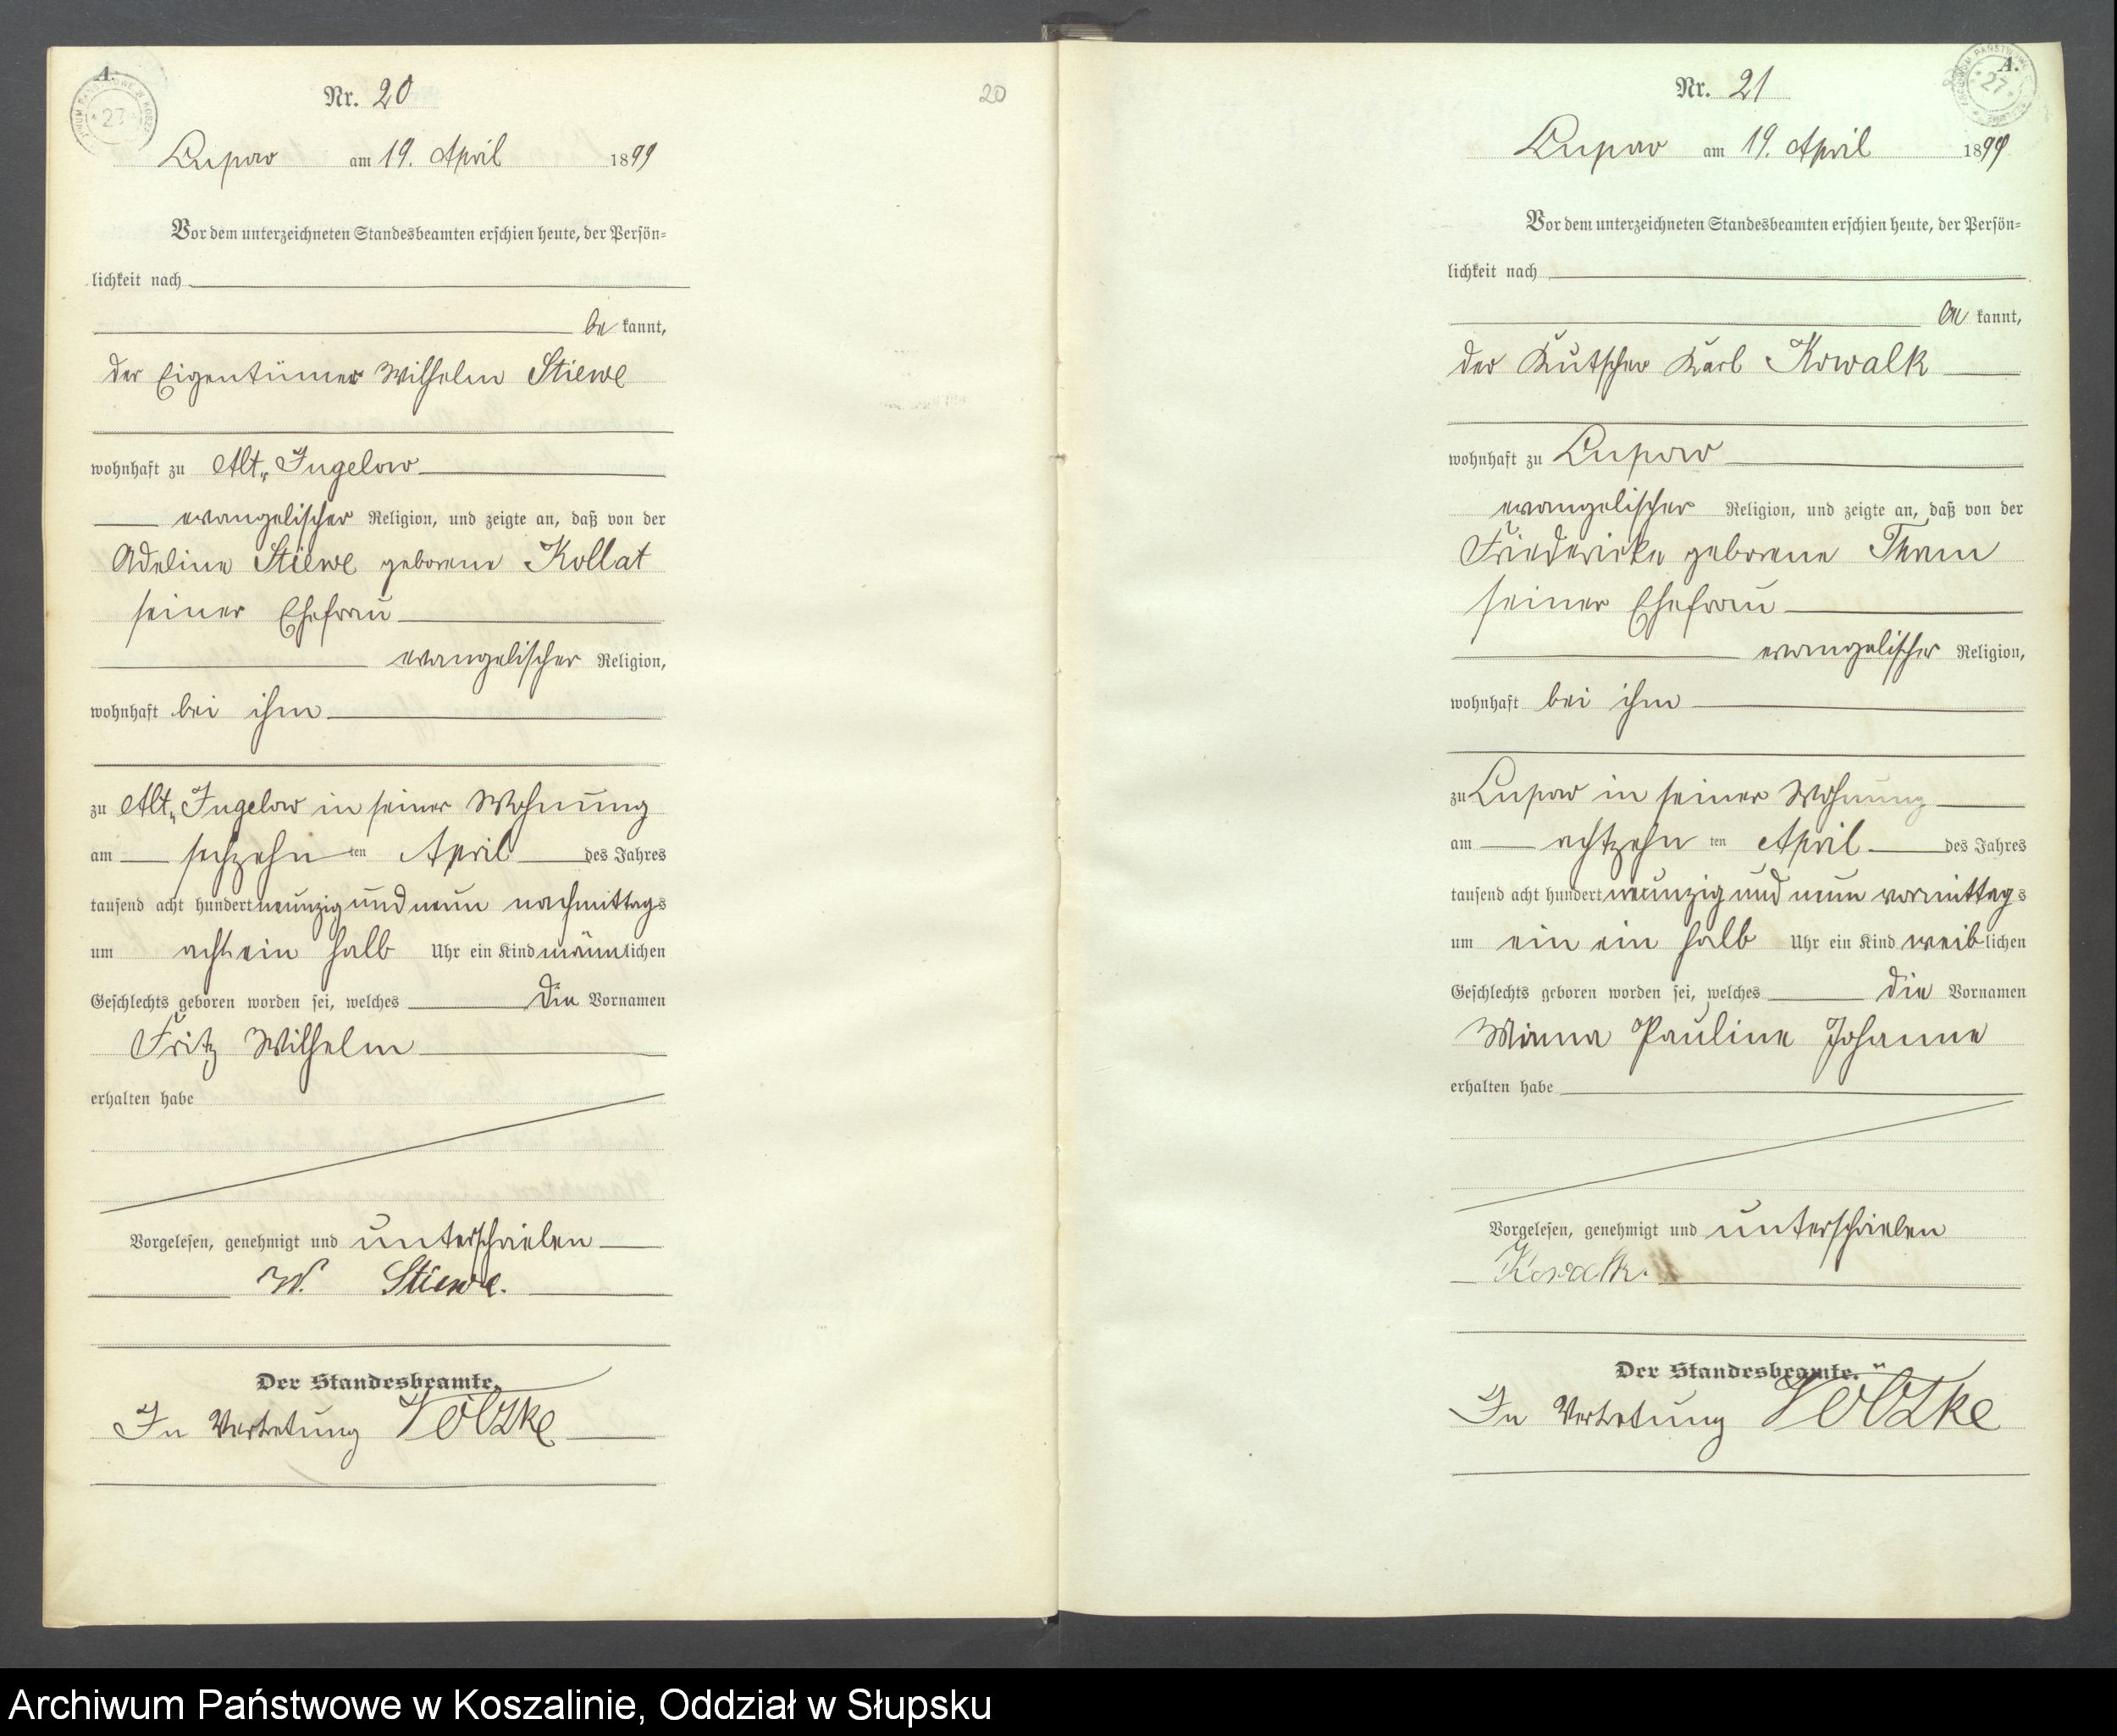 A.
Nr. 20
20
Lupow am 19. April 1899
Vor dem unterzeichneten Standesbeamten erschien heute, der Persön-
lichkeit nach
be kannt,
der Eigentümer Wilhelm Stiewe
wohnhaft zu Alt-Jugelow
evangelischer Religion, und zeigte an, daß von der
Adeline Stiewe geborene Kollat
seiner Ehefrau
evangelischer Religion,
wohnhaft bei ihm
zu Alt-Jugelow in seiner Wohnung
am sechzehn ten April des Jahres
tausend acht hundert neunzig und neun nachmittags
um acht ein halb Uhr ein Kind männlichen
Geschlechts geboren worden sei, welches die Vornamen
Fritz Wilhelm
erhalten habe
Vorgelesen, genehmigt und unterschrieben
W. Stiewe.
Der Standesbeamte.
In Vertretung Völzke
A.
Nr. 21
Lupow am 19. April 1899
Vor dem unterzeichneten Standesbeamten erschien heute, der Persön-
lichkeit nach
be kannt,
der Kutscher Karl Kowalk
wohnhaft zu Lupow
evangelischer Religion, und zeigte an, daß von der
Friederieke geborene
seiner Ehefrau
evangelischer Religion,
wohnhaft bei ihm
zu Lupow in seiner Wohnung
am achtzehn ten April des Jahres
tausend acht hundert neunzig und neun vormittags
um ein ein halb Uhr ein Kind weiblichen
Geschlechts geboren worden sei, welches die Vornamen
Minna Pauline Johanne
erhalten habe
Vorgelesen, genehmigt und unterschrieben
Kowalk.
Der Standesbeamte.
In Vertretung Völzke
Archiwum Państwowe w Koszalinie, Oddział w Słupsku